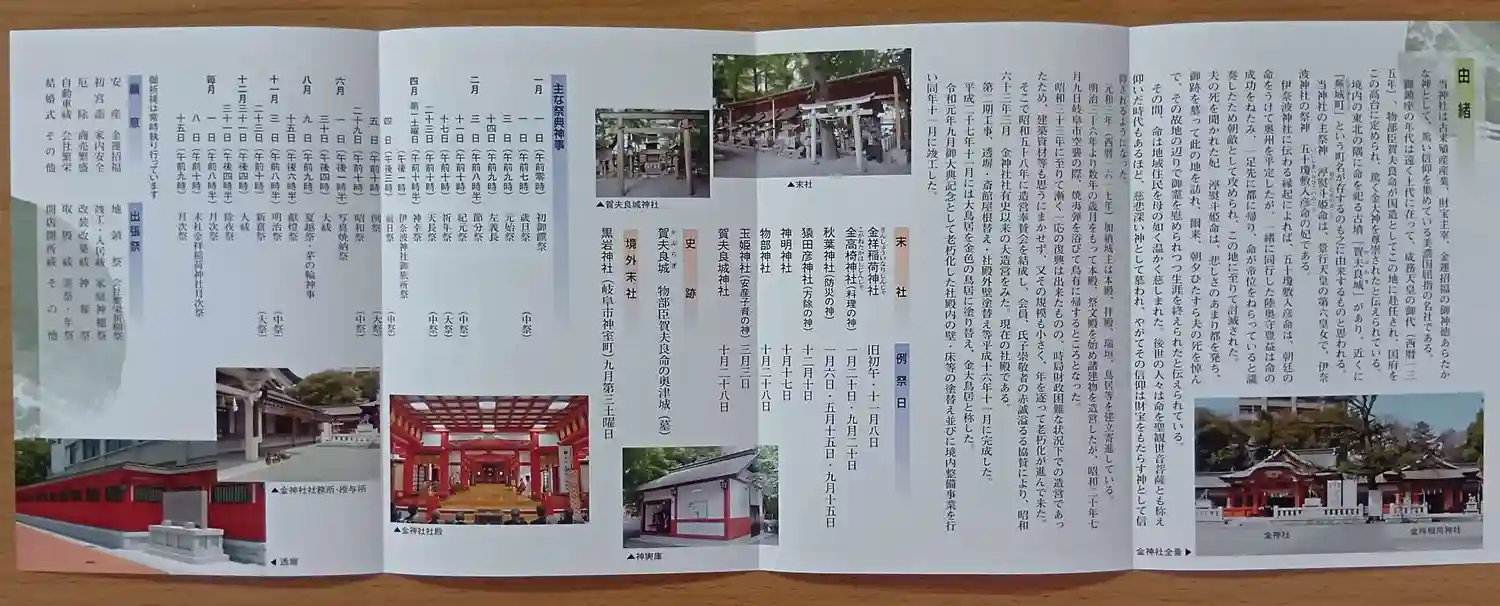 由緒
当神社は古来殖産産業、財宝主宰、金運招福の御神徳あらたか
な神として、篤い信仰を集めている美濃国屈指の名社である。
御鎮座の年代は遠く上代に在って、成務天皇の御代（西暦一三
五年）、物部臣賀夫良命が国造としてこの地に赴任され、国府を
この高台に定められ、篤く金大神を尊崇されたと伝えられている。
境内の東北の隅に命を祀る古墳「賀夫良城」があり、近くに
「蕪城町」という町名が存するのも之に由来するものと思われる。
当神社の主祭神 渟熨斗姫命は、景行天皇の第六皇女で、伊奈
波神社の祭神 五十瓊敷入彦命の妃である。
伊奈波神社に伝わる縁起によれば、五十瓊敷入彦命は、朝廷の
命をうけて奥州を平定したが、一緒に同行した陸奥守豊益は命の
成功をねたみ、一足先に都に帰り、命が帝位をねらっていると讒
奏したため朝敵として攻められ、この地に至りて討滅された。
夫の死を聞かれた妃 渟熨斗姫命は、悲しさのあまり都を発ち、
御跡を慕って此の地を訪れ、爾来、朝夕ひたすら夫の死を悼ん
で、その故地の辺りで御霊を慰められつつ生涯を終えられたと伝えられている。
その間、命は地域住民を母の如く温かく慈しまれた。後世の人々は命を聖観世音菩薩とも称え
仰いだ時代もあるほど、慈悲深い神として慕われ、やがてその信仰は財宝をもたらす神として信
仰されるようになった
元和三年（西暦一六一七年）加納城主は本殿、拝殿、瑞垣、鳥居等を建立寄進している。
明治二十六年より数年の歳月をもって本殿、祭文殿を始め諸建物を造営したが、昭和二十年七
月九日岐阜市空襲の際、焼夷弾を浴びて烏有に帰するところとなった。
昭和三十三年に至りて漸く一応の復興は出来たものの、時局財政困難な状況下での造営であっ
たため、建築資材等も思うにまかせず、又その規模も小さく、年を逐って老朽化が進んで来た。
そこで昭和五十八年に造営奉賛会を結成し、会員、氏子崇敬者の赤誠溢るる協賛により、昭和
六十三年三月 金神社社有史以来の大造営をみた。現在の社殿である。
第二期工事、透塀・斎館屋根替え・社殿外壁塗替え等平成十六年十一月に完成した。
平成二十七年十二月には大鳥居を金色の鳥居に塗り替え、金大鳥居と称した。
令和元年九月御大典記念として老朽化した社殿内の壁・床等の塗替え並びに境内整備事業を行
い同年十一月に竣工した。
金神社
金祥稲荷神社
金神社全景▶
末社
例祭日
金祥稲荷神社 旧初午・十一月八日
金高椅神社（料理の神） 一月二十日・九月二十日
秋葉神社（防災の神） 一月六日・五月十五日・九月十五日
猿田彦神社（方除の神） 十二月十日
神明神社 十月十七日
物部神社 十月二十八日
玉姫神社（安産子育の神） 三月三日
賀夫良城神社 十月二十八日
史跡
賀夫良城 物部臣賀夫良命の奥津城（墓）
境外末社
黒岩神社（岐阜市神室町）九月第三土曜日
▲末社
▲賀夫良城神社
▲神輿庫
主な祭典神事
一月 一日（午前零時） 初御饌祭
一日（午前七時） 歳旦祭（中祭）
三日（午前九時） 元始祭
二月 三日（午前八時半） 節分祭
十四日（午前九時） 左義長
十一日（午前十時） 紀元祭（中祭）
十七日（午前十時） 祈年祭（大祭）
二十三日（午前十時） 天長祭（中祭）
四月 第一土曜日（午後一時） 神幸祭
伊奈波神社御旅所祭
四日（午後三時） 前日祭（中祭）
五日（午前十時） 例祭（大祭）
二十九日（午前十時） 昭和祭（中祭）
六月 一日（午後一時） 写真焼納祭
三十日（午後四時） 大祓
八月 九日（午前九時） 夏越祭・茅の輪神事
十五日（午後六時半） 献燈祭
十一月 三日（午前八時半） 明治祭（中祭）
二十三日（午前十時） 新嘗祭（大祭）
十二月 三十一日（午後四時） 大祓
三十一日（午後四時半） 除夜祭
毎月 一日（午前八時半） 月次祭
八日（午前十時） 末社金祥稲荷神社月次祭
十五日（午前九時） 月次祭
▲金神社社殿
御祈祷は常時執り行っています
願意
安産 金運招福
初宮詣 家内安全
厄除 商売繁盛
自動車祓 会社繁栄
結婚式 その他
出張祭
地鎮祭 会社繁栄祈願祭
竣工・入居祓 家庭神棚祭
改装改築祓 神葬祭
取毀祓 霊祭・年祭
開店開所祓 その他
▲金神社社務所・授与所
◀透塀